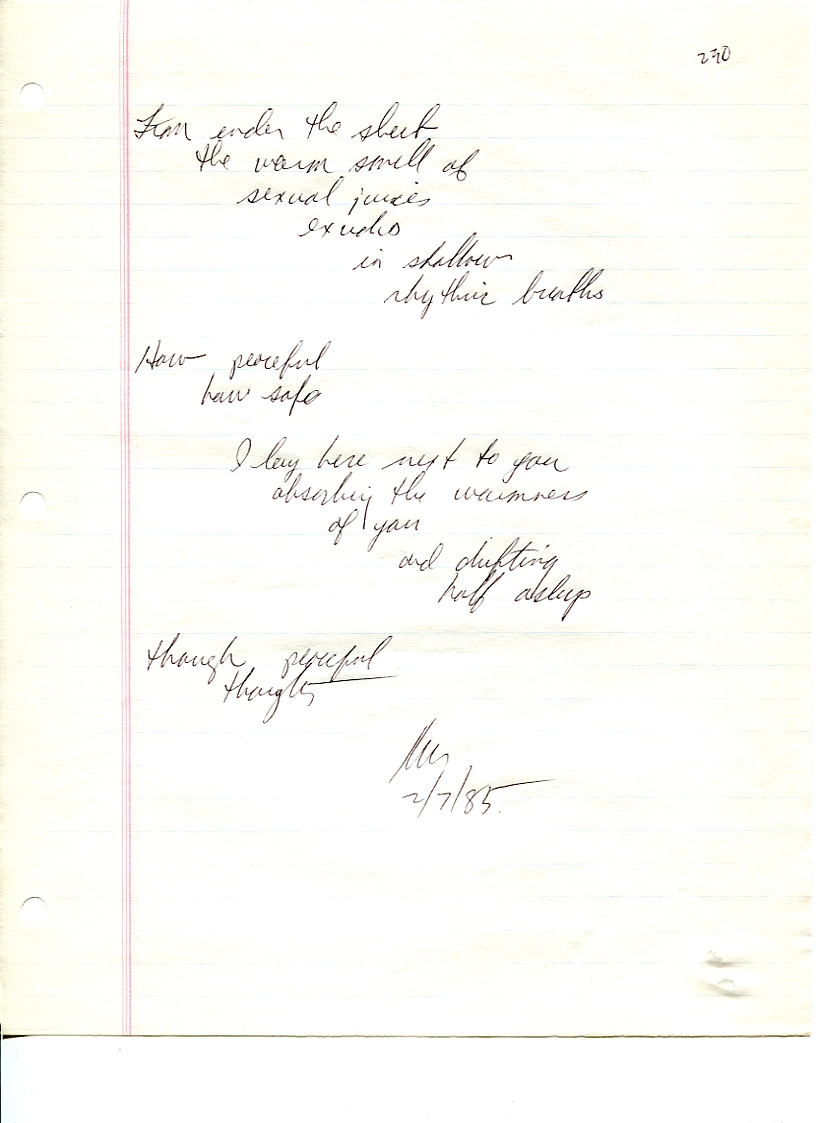 290
From under the sheet
the warm smell of
sexual juices
exudes
in shallow
rhythic breaths
How peaceful
how safe
I lay here next to you
absorbing the warmness
of you
and drifting
half asleep
through peaceful
thoughts
2/7/85.